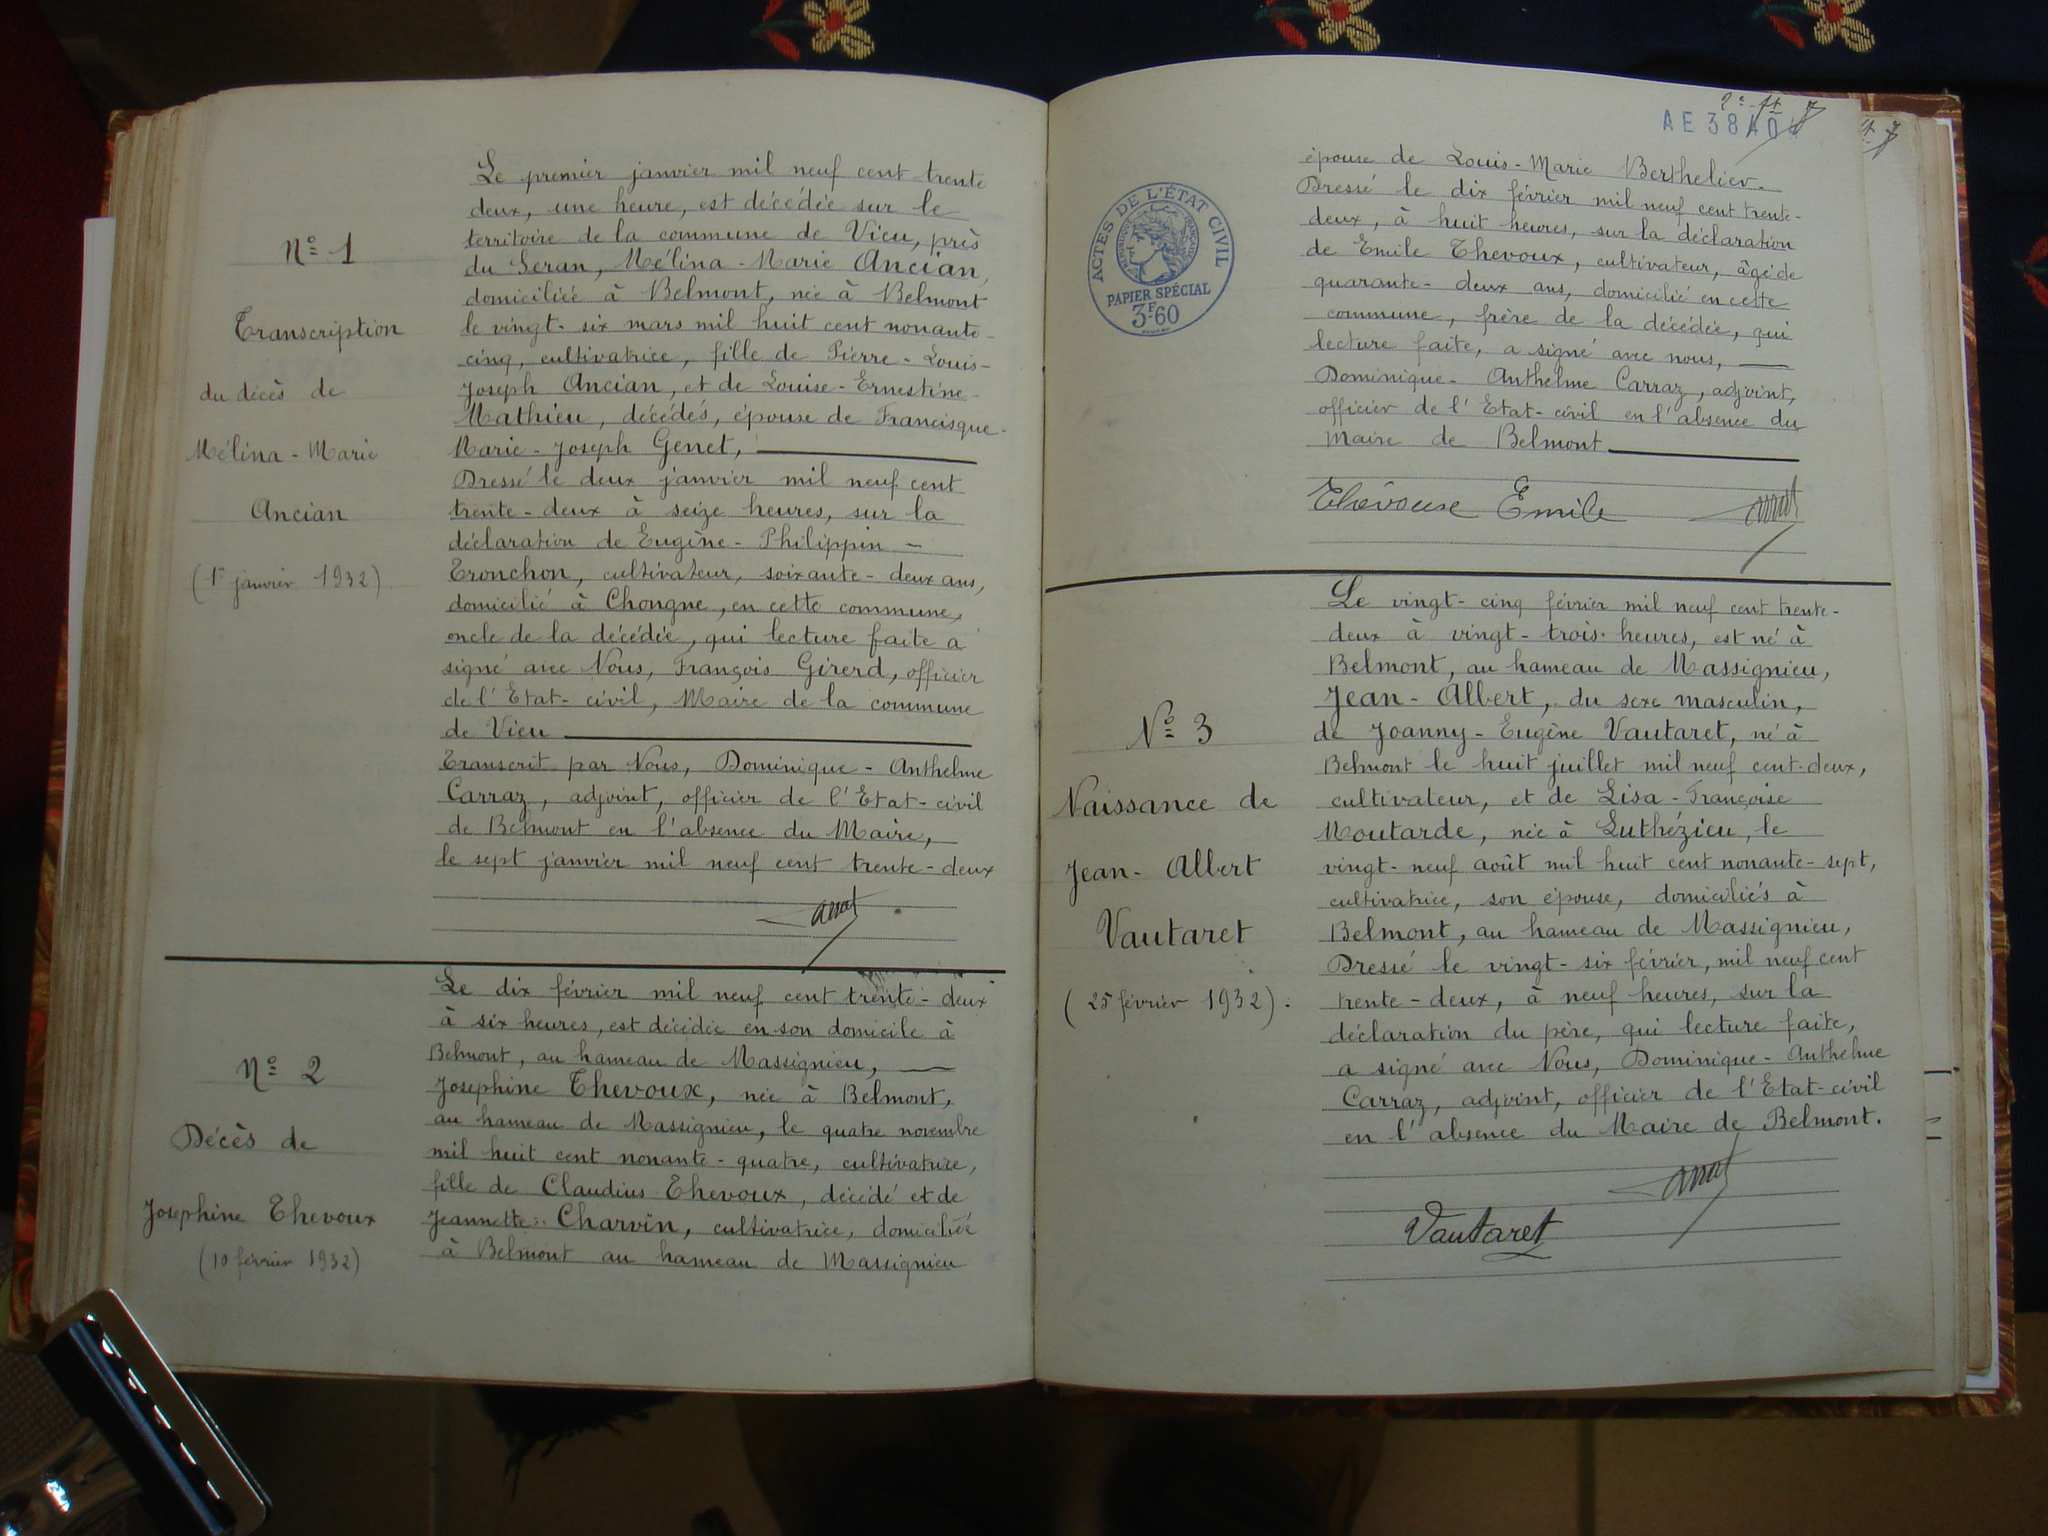 Nº 1
Transcription
du décès de
Mélina - Marie
Ancian
(1er janvier 1932)
Le premier janvier mil neuf cent trente
deux, une heure, est décédée sur le
territoire de la commune de Vieu, près
du Seran, Mélina - Marie Ancian,
domiciliée à Belmont, née à Belmont
le vingt-six mars mil huit cent nonante-
cinq, cultivatrice, fille de Pierre - Louis-
Joseph Ancian, et de Louise - Ernestine
Mathieu, décédés, épouse de Francisque-
Marie - Joseph Genet,
Dressé le deux janvier mil neuf cent
trente-deux à seize heures, sur la
déclaration de Eugène - Philippin -
Tronchon, cultivateur, soixante-deux ans,
domicilié à Chongne, en cette commune,
oncle de la décédée, qui lecture faite a
signé avec Nous, François Girerd, officier
de l'Etat-civil, Maire de la commune
de Vieu
Transcrit par Nous, Dominique - Anthelme
Carraz, adjoint, officier de l'Etat-civil
de Belmont en l'absence du Maire,
le sept janvier mil neuf cent trente-deux
Nº 2
Décès de
Josephine Thevoux
(10 février 1932)
Le dix février mil neuf cent trente-deux
à six heures, est décédée en son domicile à
Belmont, au hameau de Massignieu,
Josephine Thevoux, née à Belmont,
au hameau de Massignieu, le quatre novembre
mil huit cent nonante-quatre, cultivatrice,
fille de Claudius Thevoux, décédé et de
Jeannette Charvin, cultivatrice, domiciliée
à Belmont au hameau de Massignieu
AE 38404
ACTES DE L'ÉTAT CIVIL
RÉPUBLIQUE FRANÇAISE
PAPIER SPÉCIAL
3F60
épouse de Louis - Marie Berthelier.
Dressé le dix février mil neuf cent trente-
deux, à huit heures, sur la déclaration
de Emile Thevoux, cultivateur, âgé de
quarante-deux ans, domicilié en cette
commune, frère de la décédée, qui
lecture faite, a signé avec nous,
Dominique - Anthelme Carraz, adjoint,
officier de l'Etat-civil en l'absence du
Maire de Belmont
Thévoux Emile
Nº 3
Naissance de
Jean - Albert
Vautaret
(25 février 1932).
Le vingt-cinq février mil neuf cent trente-
deux à vingt-trois heures, est né à
Belmont, au hameau de Massignieu,
Jean - Albert, du sexe masculin,
de Joanny - Eugène Vautaret, né à
Belmont le huit juillet mil neuf cent-deux,
cultivateur, et de Lisa - Françoise
Moutarde, née à Luthézieu, le
vingt-neuf août mil huit cent nonante-sept,
cultivatrice, son épouse, domiciliés à
Belmont, au hameau de Massignieu,
Dressé le vingt-six février, mil neuf cent
trente-deux, à neuf heures, sur la
déclaration du père, qui lecture faite,
a signé avec Nous, Dominique - Anthelme
Carraz, adjoint, officier de l'Etat-civil
en l'absence du Maire de Belmont.
Vautaret